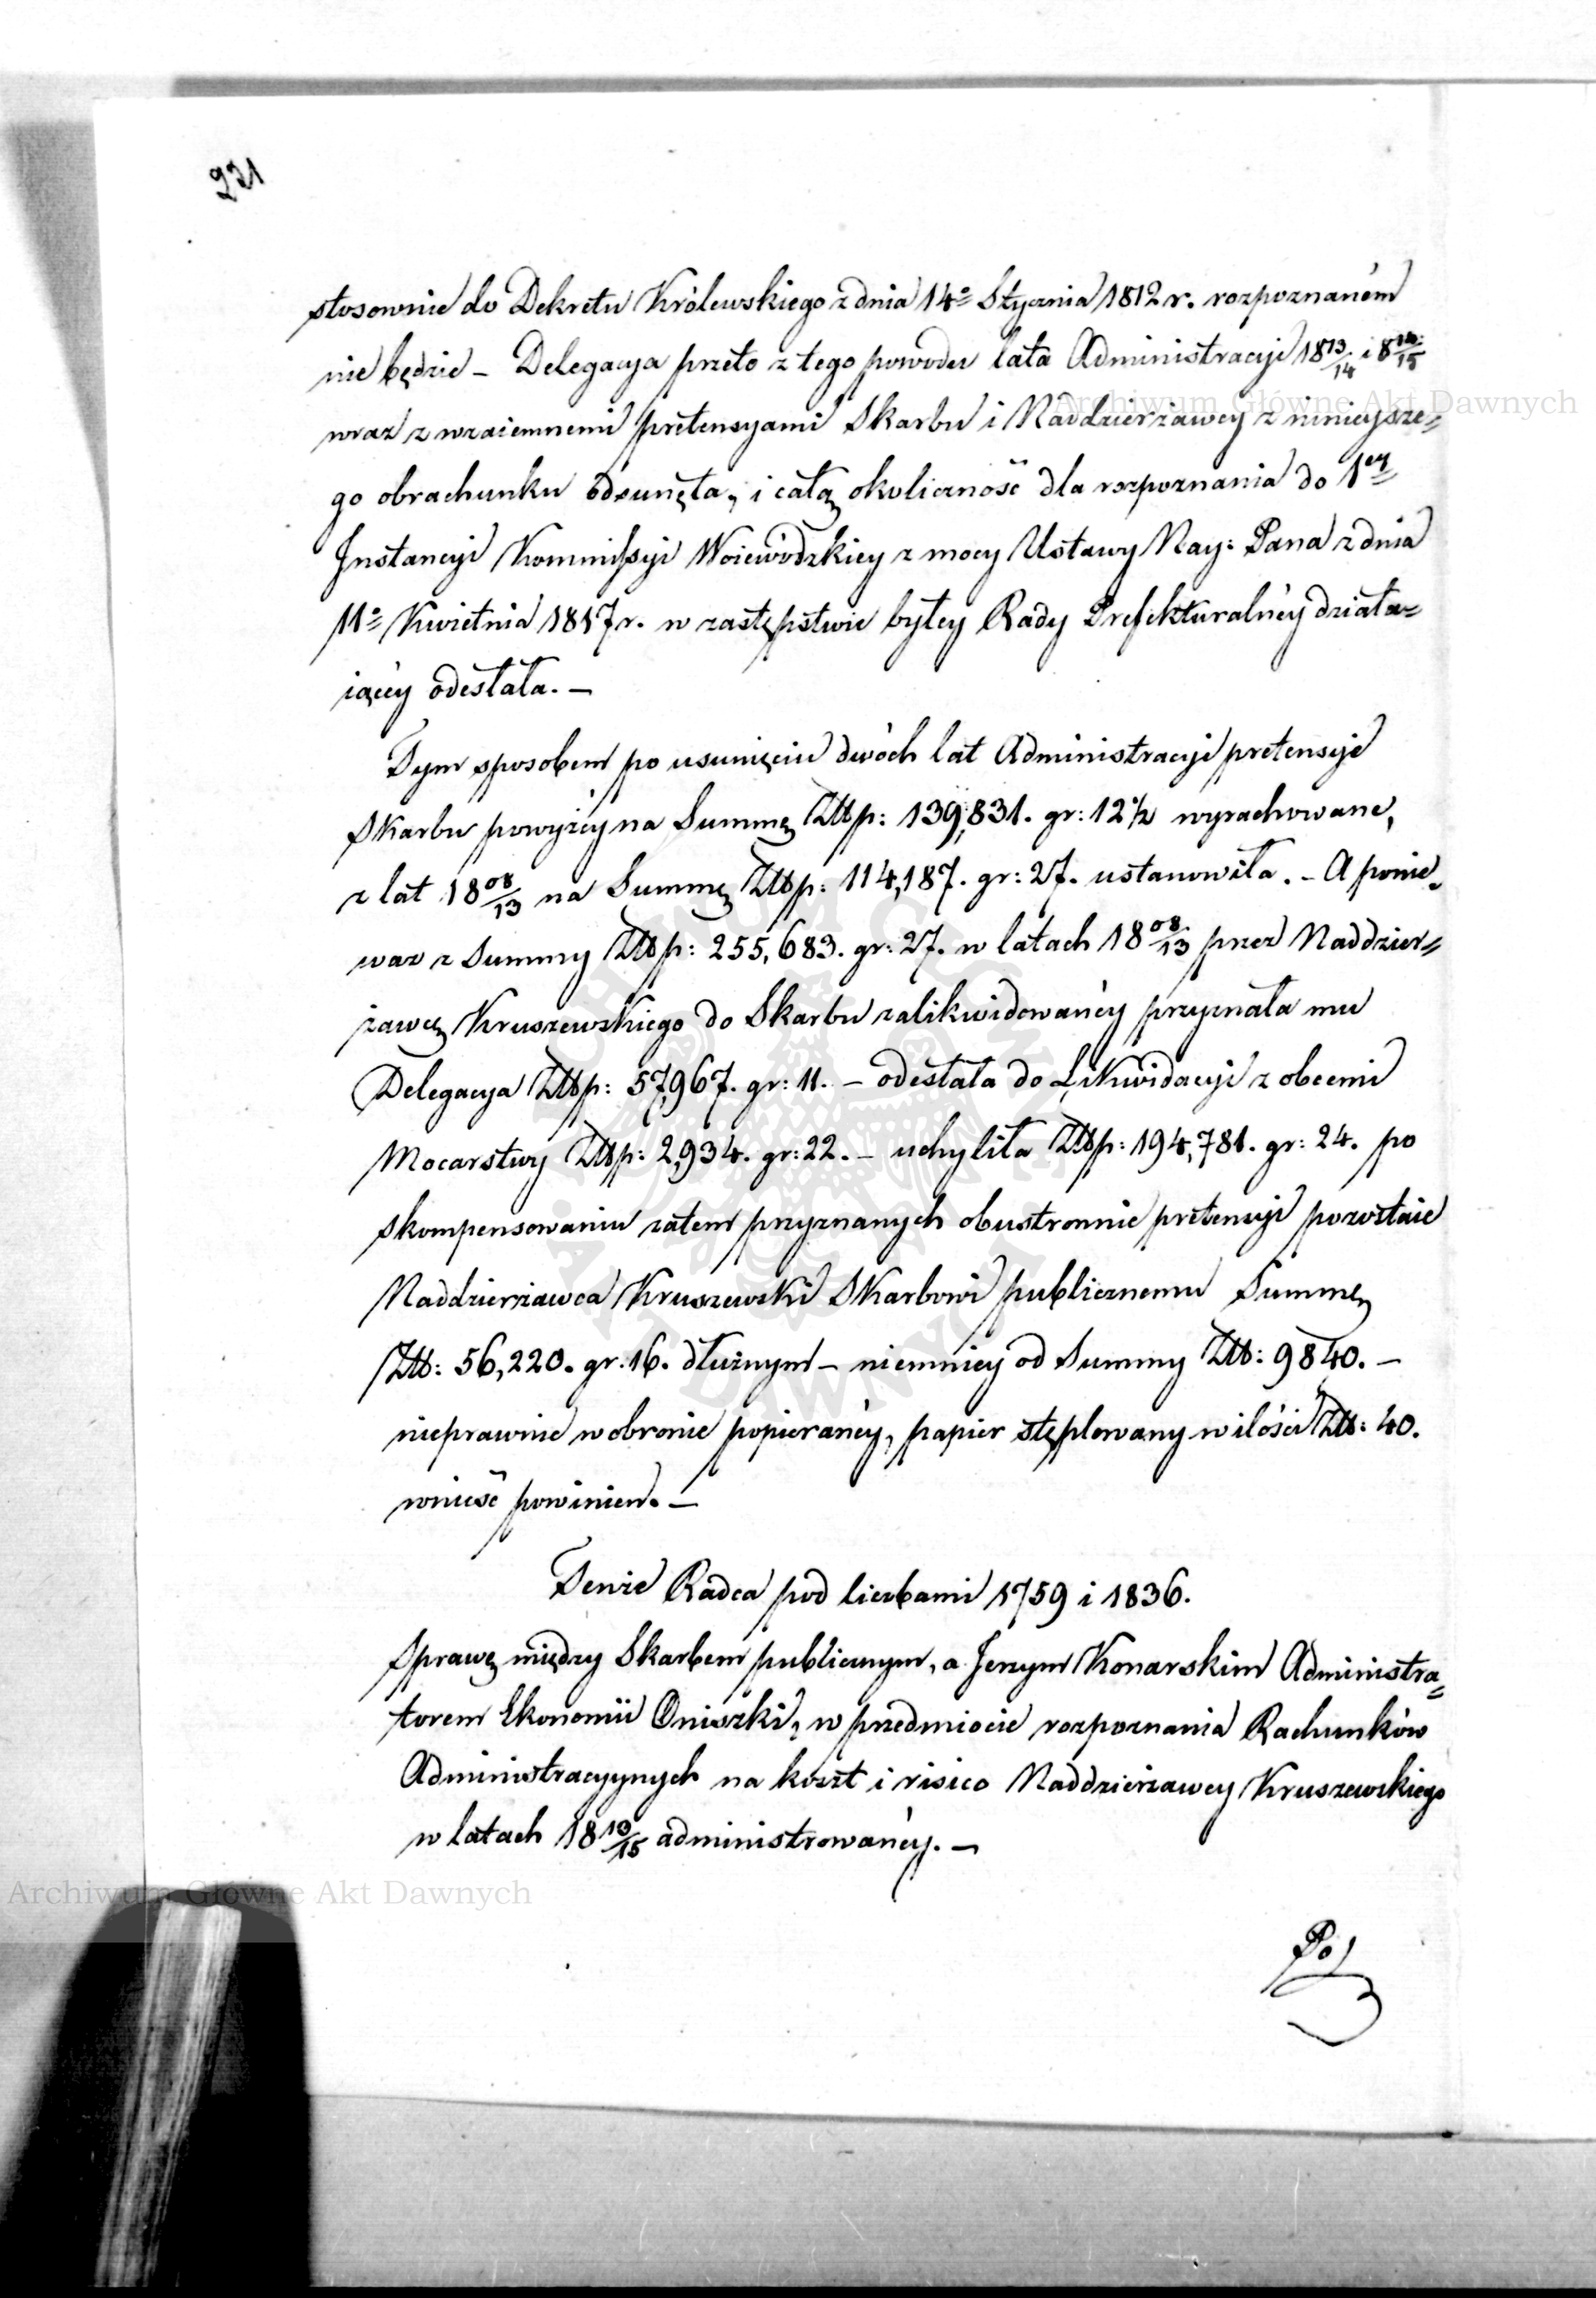 231
stosownie do Dekretu Królewskiego z dnia 14º Stycznia 1812 r. rozpoznaném
nie będzie – Delegacya przeto z tego powodu lata Administracyi 18 13/14 i 8 14/15
wraz z wzaiemnemi pretensyami Skarbu i Naddzierżawcy z ninieysze=
go obrachunku odsunęła, i całą okoliczność dla rozpoznania do 1ey
Instancyi Kommissyi Woiewódzkiey z mocy Ustawy Nay: Pana z dnia
11º Kwietnia 1817 r. w zastępstwie byłey Rady Prefekturalnéy działa=
iącéy odesłała. –
Tym sposobem po usunięciu dwóch lat Administracyi pretensye
Skarbu powyżey na Summę Złłp: 139,831. gr: 12½ wyrachowane,
z lat 18 08/13 na Summę Złłp: 114,187. gr: 27. ustanowiła. – A ponie=
waz z Summy Złłp: 255,683. gr: 27. w latach 18 08/13 przez Naddzier=
żawcę Kruszewskiego do Skarbu zalikwidowanéy przyznała mu
Delegacya Złłp: 57,967. gr: 11. – odesłała do Likwidacyi z obcemi
Mocarstwy Złłp: 2,934. gr: 22. – uchyliła Złłp: 194,781. gr: 24. po
skompensowaniu zatem przyznanych obustronnie pretensyi pozostaie
Naddzierżawca Kruszewski Skarbowi publicznemu Summę
Złł: 56,220. gr. 16. dłużnym – niemniey od Summy Złł: 9840. –
nieprawnie w obronie popieranéy, papier stęplowany w ilości Złł: 40.
wnieść powinien. –
Tenże Radca pod liczbami 1759 i 1836.
Sprawę między Skarbem publicznym, a Jerzym Konarskim Administra=
torem Ekonomii Oniszki, w przedmiocie rozpoznania Rachunków
Administracyynych na koszt i risico Naddzierżawcy Kruszewskiego
w latach 18 13/15 administrowanéy. –
Po
Archiwum Główne Akt Dawnych
Archiwum Główne Akt Dawnych